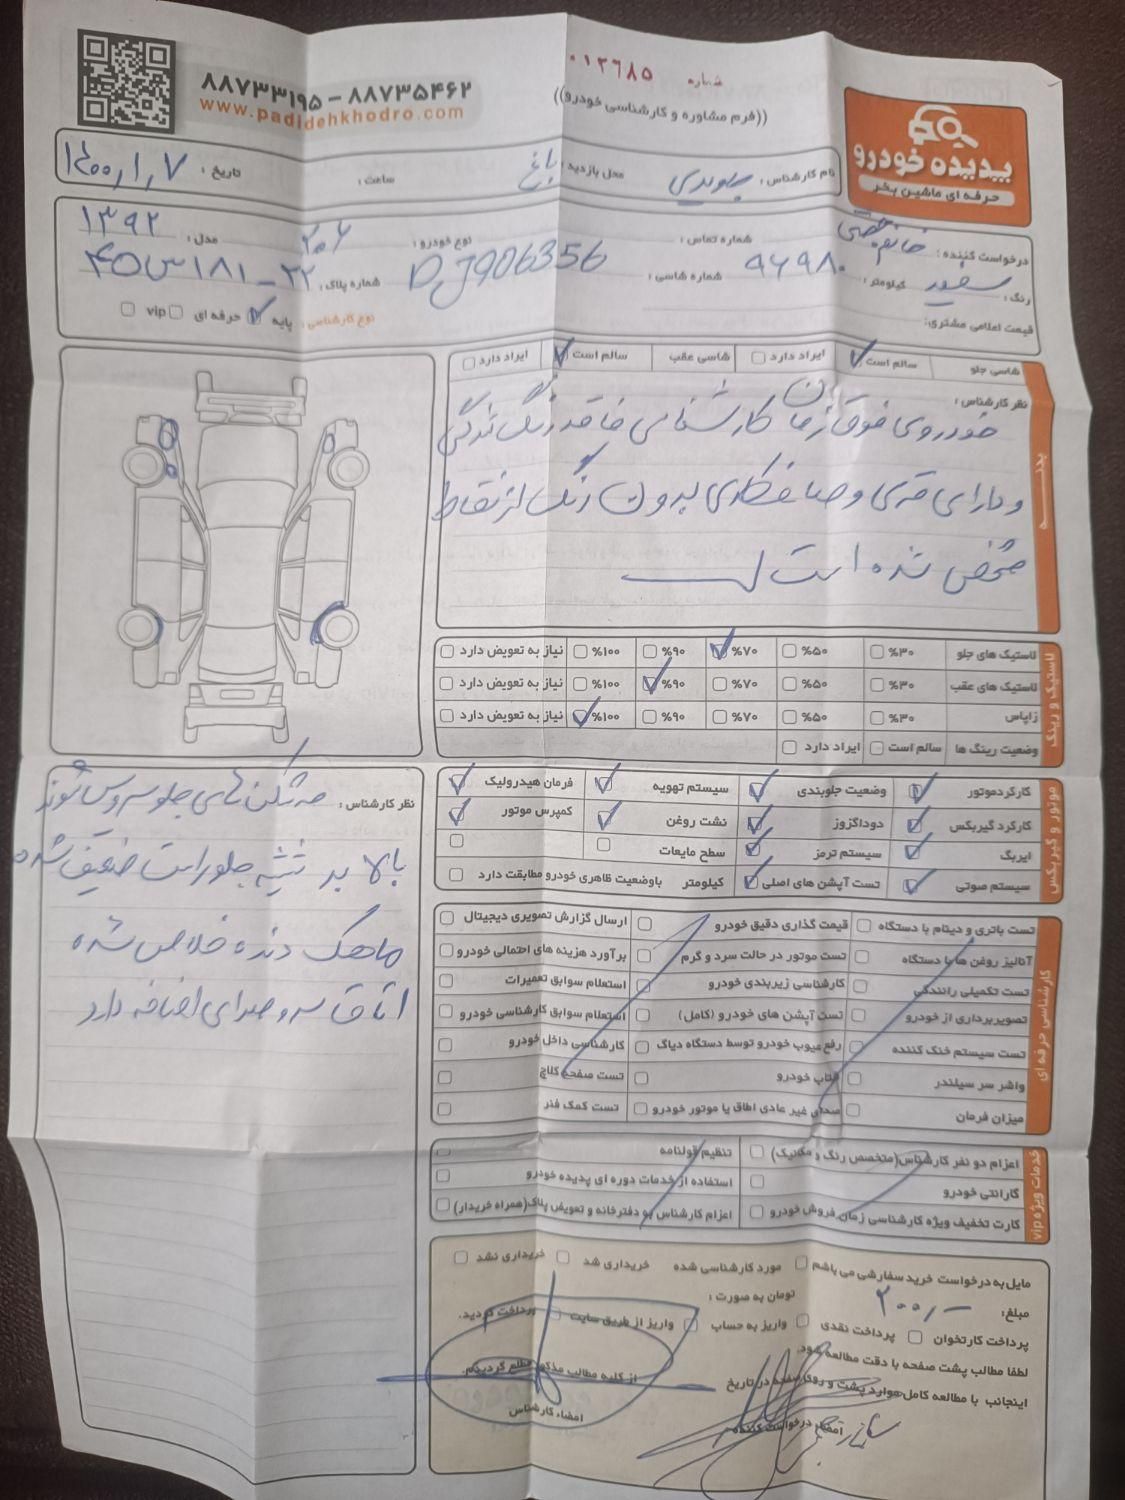 شماره ۰۱۲۶۸۵
۸۸۷۳۳۱۹۵ – ۸۸۷۳۵۴۶۲
www.padidehkhodro.com
((فرم مشاوره و کارشناسی خودرو))
پدیده خودرو
حرفه ای ماشین بخر
نام کارشناس : محل بازدید : باغ ساعت : تاریخ : ۱۴۰۰,۱,۷
درخواست کننده : خانم شماره تماس : نوع خودرو : ۲۰۶ مدل : ۱۳۹۲
رنگ : سفید کیلومتر : ۹۶۹۸۰ شماره شاسی : DJ906356 شماره پلاک :
قیمت اعلامی مشتری: نوع کارشناسی : پایه حرفه ای vip
شاسی جلو سالم است ایراد دارد شاسی عقب سالم است ایراد دارد
بدنه
نظر کارشناس :
خودروی فوق در زمان کارشناسی فاقد رنگ شدگی
و دارای قری و صافکاری بدون رنگ از نقاط
مشخص شده است
لاستیک و رینگ
لاستیک های جلو %۳۰ %۵۰ %۷۰ %۹۰ %۱۰۰ نیاز به تعویض دارد
لاستیک های عقب %۳۰ %۵۰ %۷۰ %۹۰ %۱۰۰ نیاز به تعویض دارد
زاپاس %۳۰ %۵۰ %۷۰ %۹۰ %۱۰۰ نیاز به تعویض دارد
وضعیت رینگ ها سالم است ایراد دارد
موتور و گیربکس
کارکرد موتور وضعیت جلوبندی سیستم تهویه فرمان هیدرولیک
کارکرد گیربکس دوداگزوز نشت روغن کمپرس موتور
ایربگ سیستم ترمز سطح مایعات
سیستم صوتی تست آپشن های اصلی کیلومتر باوضعیت ظاهری خودرو مطابقت دارد
نظر کارشناس :
مه شکن های جلو سرویس شوند
بالا بر شیشه جلو راست ضعیف شده
ماهک دنده خلاص شده
اتاق سر و صدای اضافه دارد
کارشناسی حرفه ای
تست باتری و دینام با دستگاه قیمت گذاری دقیق خودرو ارسال گزارش تصویری دیجیتال
آنالیز روغن ها با دستگاه تست موتور در حالت سرد و گرم برآورد هزینه های احتمالی خودرو
تست تکمیلی رانندگی کارشناسی زیربندی خودرو استعلام سوابق تعمیرات
تصویربرداری از خودرو تست آپشن های خودرو (کامل) استعلام سوابق کارشناسی خودرو
تست سیستم خنک کننده رفع عیوب خودرو توسط دستگاه دیاگ کارشناسی داخل خودرو
واشر سر سیلندر شتاب خودرو تست صفحه کلاچ
میزان فرمان صدای غیر عادی اطاق یا موتور خودرو تست کمک فنر
خدمات ویژه vip
اعزام دو نفر کارشناس(متخصص رنگ و مکانیک) تنظیم قولنامه
گارانتی خودرو استفاده از خدمات دوره ای پدیده خودرو
کارت تخفیف ویژه کارشناسی زمان فروش خودرو اعزام کارشناس به دفترخانه و تعویض پلاک(همراه خریدار)
مایل به درخواست خرید سفارشی می باشم مورد کارشناسی شده خریداری شد خریداری نشد
مبلغ: ۲۰۰,۰۰۰ تومان به صورت :
پرداخت کارتخوان پرداخت نقدی واریز به حساب واریز از طریق سایت پرداخت گردید.
لطفا مطالب پشت صفحه با دقت مطالعه شود.
اینجانب با مطالعه کامل موارد پشت و روی صفحه در تاریخ از کلیه مطالب مذکور مطلع گردیدم.
امضاء درخواست کننده امضاء کارشناس